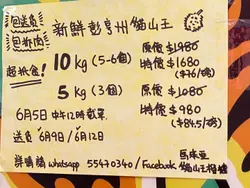 包送貨
包新肉
新鮮彭亨州貓山王
超抵食!
10 kg (5-6個)
原價 $1980
特價 $1680
($76/磅)
5 kg (3個)
原價 $1080
特價 $980
($84.5/磅)
6月5日 中午12時截單
送貨 6月9日 / 6月12日
詳情請 whatsapp 55470340 / Facebook 貓山王
馬來亞